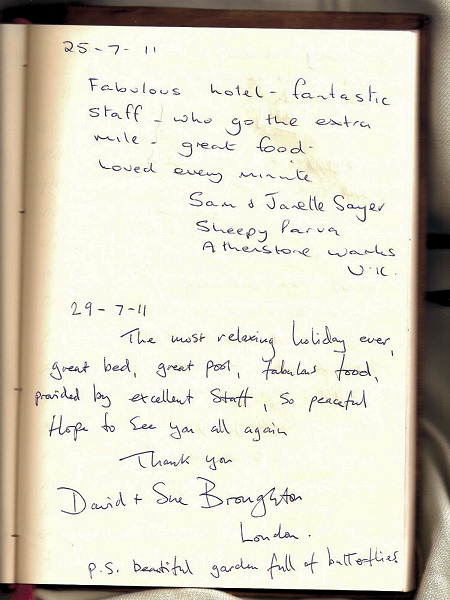 25-7-11
Fabulous hotel - fantastic
staff - who go the extra
mile - great food-
Loved every minute
Sam & Janelle Sayer
Sheepy Parva
Atherstone Warks
U.K.
29-7-11
The most relaxing holiday ever,
great bed, great pool, fabulous food,
provided by excellent staff, so peaceful
Hope to see you all again
Thank you
David + Sue Broughton
London.
P.S. beautiful garden full of butterflies